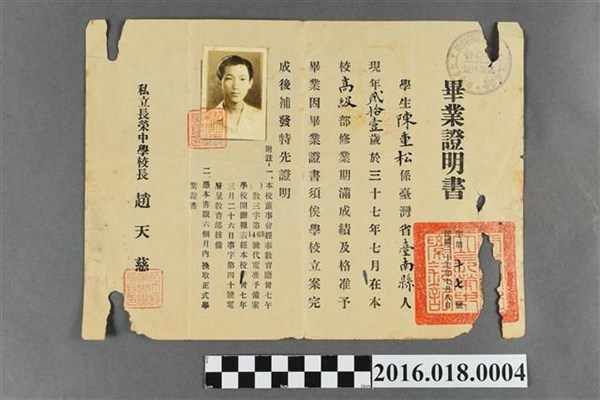 畢業證明書
學生陳重松係臺灣省臺南縣人
現年貳拾壹歲於三十七年七月在本
校高級部修業期滿成績及格准予
畢業因畢業證書須俟學校立案完
成後補發特先證明
附註：一、本校董事會經奉教育廳卅七午
教三字第1463號代電准予備案
學校開辦報表經本校卅七年
三月二十六日事字第四十號電
層呈教育部核備
二、憑本書限六個月內換取正式畢
業證書
私立長榮中學校長 趙天慈
2016.018.0004